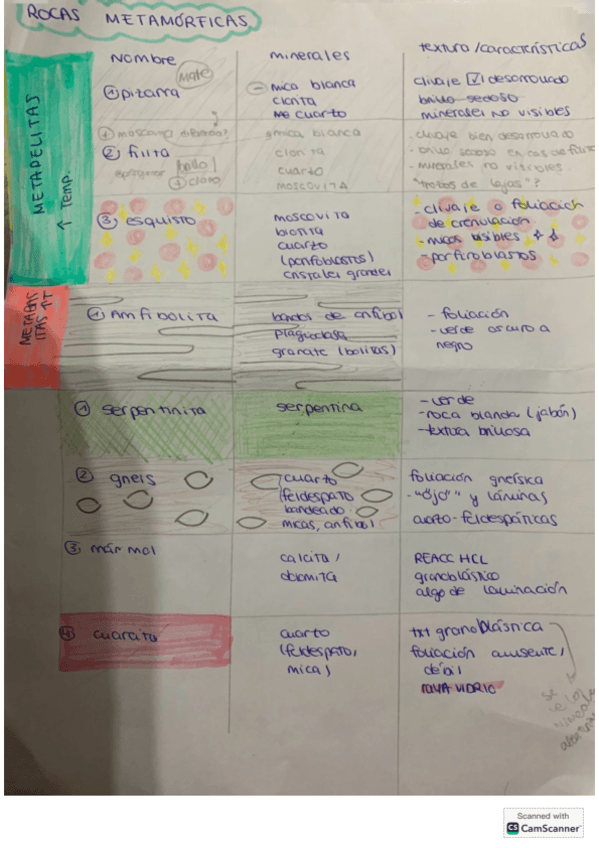 ROCAS METAMÓRFICAS
Nombre
minerales
textura/características
METAPELITAS
↑ Temp.
Mate
① pizarra
- mica blanca
clorita
cuarzo
clivaje desarrollado
brillo sedoso
minerales no visibles
② filita
brillo!
mica blanca
clorita
cuarzo
MOSCOVITA
- clivaje bien desarrollado
- minerales no visibles
"trozos de lajas"?
③ esquisto
moscovita
biotita
cuarzo
(porfioblastos)
cristales grandes
- clivaje o foliación
de crenulación
- micas visibles
- porfiroblastos
METABAS
ITAS ↑T
① Anfibolita
bandas de anfíbol
plagioclasa
granate (bolitas)
- foliación
- verde oscuro a
negro
① serpentinita
serpentina
- verde
- roca blanda (jabón)
- textura brillosa
② gneis
cuarzo
feldespato
bandeado
micas, anfíbol
foliación gnéisica
- "ojo" y láminas
cuarzo-feldespáticas
③ mármol
calcita/
dolomita
REACC HCL
granoblástico
algo de laminación
④ cuarcita
cuarzo
(feldespato,
micas)
txt granoblásnica
foliación ausente/
débil
RAYA VIDRIO
Scanned with
CS CamScanner